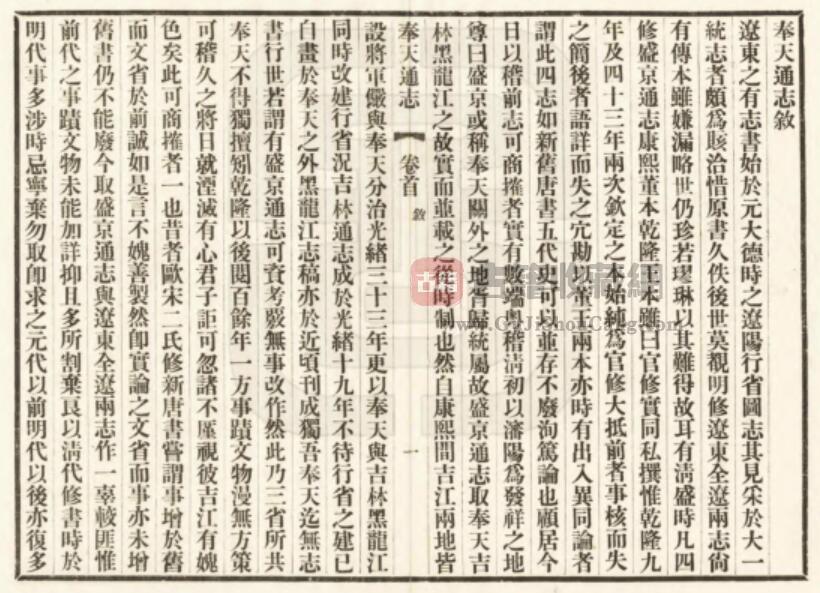 奉天通志敘
遼東之有志書始於元大德時之遼陽行省圖志其見采於大一
統志者頗爲賅洽惜原書久佚後世莫覩明修遼東全遼兩志尙
有傳本雖嫌漏略世仍珍若璆琳以其難得故耳有淸盛時凡四
修盛京通志康熙董本乾隆王本雖曰官修實同私撰惟乾隆九
年及四十三年兩次欽定之本始純爲官修大抵前者事核而失
之簡後者語詳而失之宂勘以董王兩本亦時有出入異同論者
謂此四志如新舊唐書五代史可以並存不廢洵篤論也顧居今
日以稽前志可商搉者實有數端粤稽淸初以瀋陽爲發祥之地
尊曰盛京或稱奉天關外之地皆歸統屬故盛京通志取奉天吉
林黑龍江之故實而並載之從時制也然自康熙間吉江兩地皆
奉天通志
卷首
敘
一
設將軍儼與奉天分治光緒三十三年更以奉天與吉林黑龍江
同時改建行省況吉林通志成於光緒十九年不待行省之建已
自畫於奉天之外黑龍江志稿亦於近頃刊成獨吾奉天迄無志
書行世若謂有盛京通志可資考覈無事改作然此乃三省所共
奉天不得獨擅矧乾隆以後閱百餘年一方事蹟文物漫無方策
可稽久之將日就湮滅有心君子詎可忽諸不厪視彼吉江有媿
色矣此可商搉者一也昔者歐宋二氏修新唐書嘗謂事增於舊
而文省於前誠如是言不媿善製然卽實論之文省而事亦未增
舊書仍不能廢今取盛京通志與遼東全遼兩志作一辜較匪惟
前代之事蹟文物未能加詳抑且多所割棄良以淸代修書時於
明代事多涉時忌寧棄勿取卽求之元代以前明代以後亦復多
古籍
古籍收藏網
www.GuJiShouCang.com